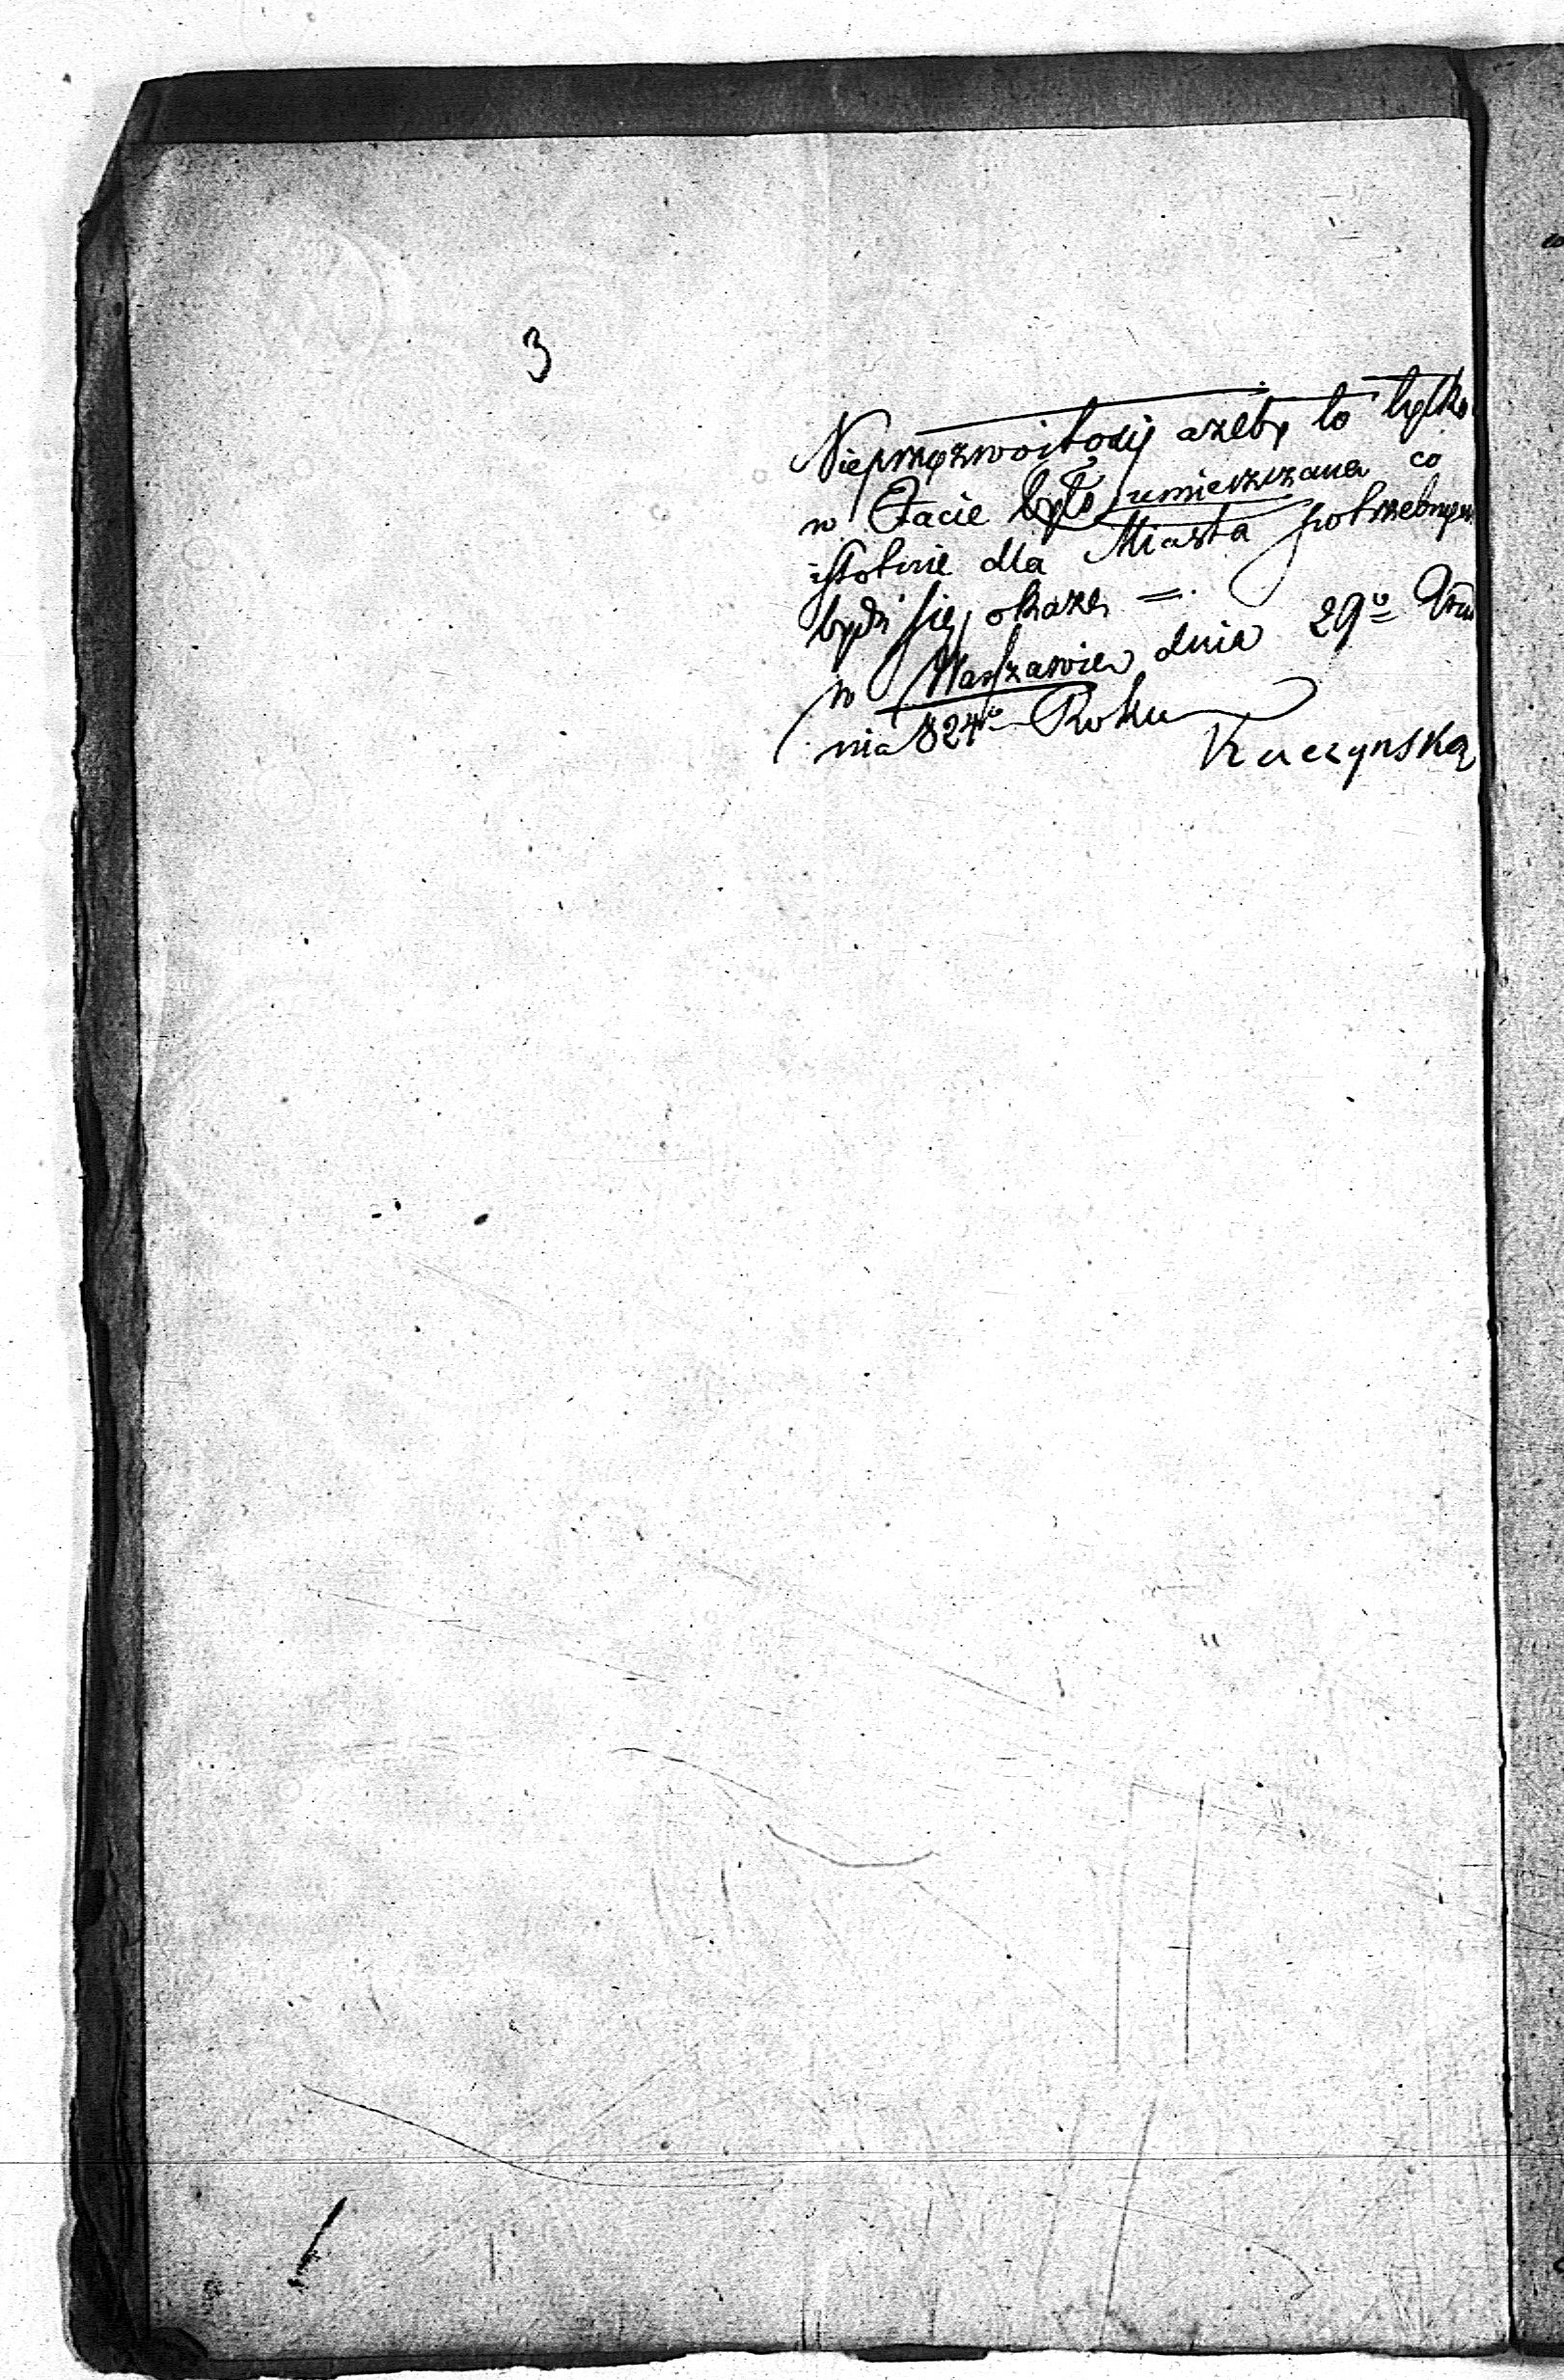 3
Nieprzyzwoitości ażeby to tylko
w Etacie było umieszczane co
istotnie dla Miasta potrzebnym
bydź się okaże =.
w Warszawie dnia 29º
nia 824º Roku
Kuczynska